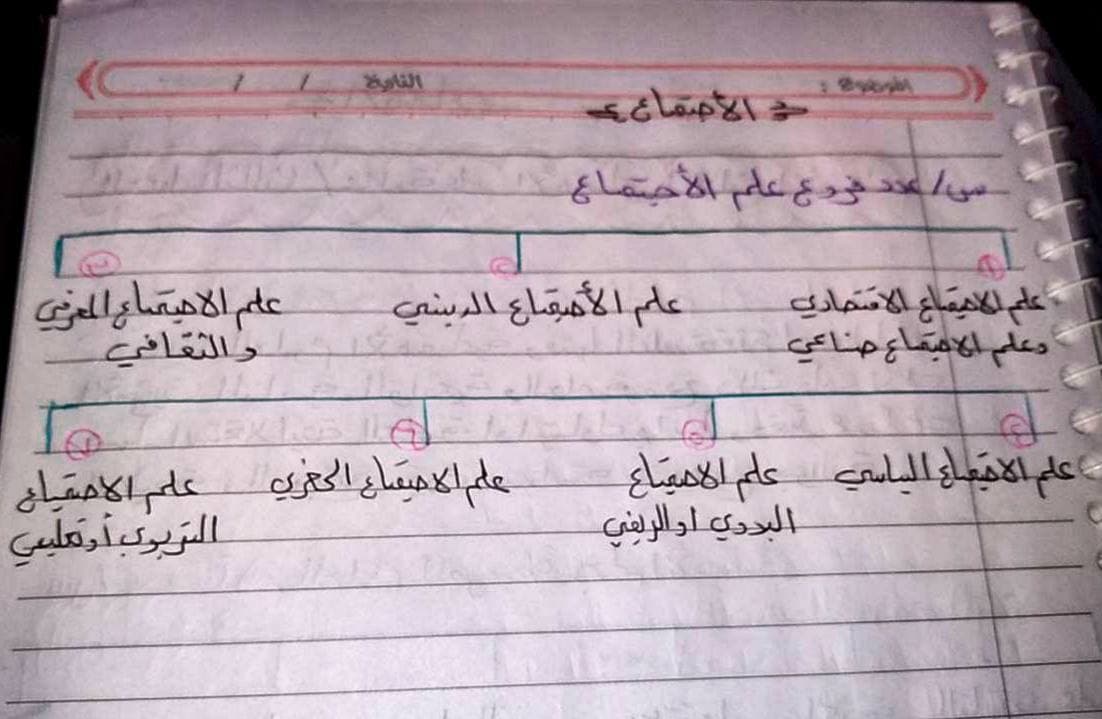 الموضوع : التاريخ / /
الأجتماع
س/ عدد فروع علم الأجتماع
١ ٢ ٣
علم الاجتماع الاقتصادي علم الأجتماع الديني علم الاجتماع المعرفي
وعلم الاجتماع صناعي والثقافي
٤ ٥ ٦ ٧
علم الاجتماع السياسي علم الاجتماع علم الاجتماع الحضري علم الاجتماع
البدوي او الريفي التربوي أو تعليمي